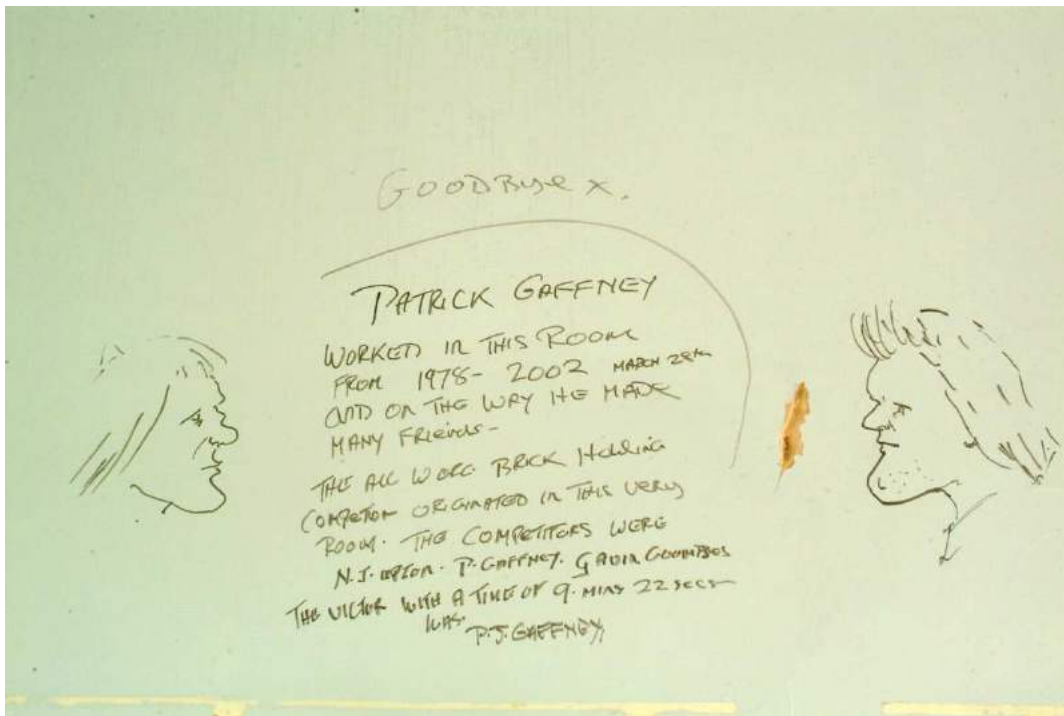 GOODBYE x.
PATRICK GAFFNEY
WORKED IN THIS ROOM
FROM 1978- 2002 MARCH 28th
AND ON THE WAY HE MADE
MANY FRIENDS-
THE ALL WORLD BRICK HOLDING
ORIGINATED IN THIS VERY
ROOM. THE COMPETITORS WERE
N.J. P. GAFFNEY. GAVIN
THE VICTOR WITH A TIME OF 9. MINS 22 SECS
WAS
P.J. GAFFNEY,